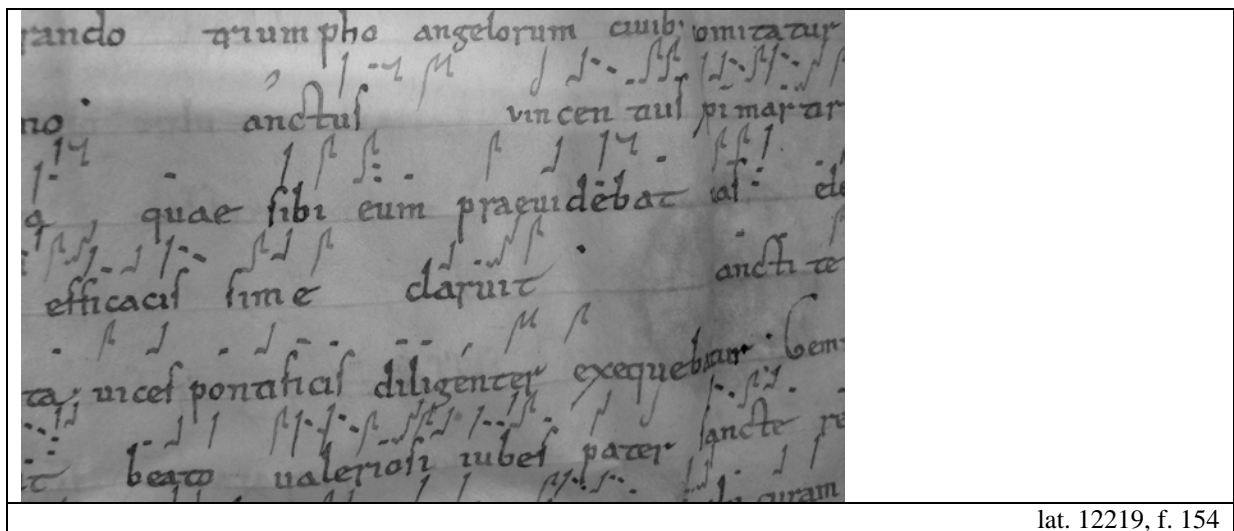 rando triumpho angelorum ciuib; omitatur
no anctus vincentius pi martir
q, quae sibi eum praeuidebat ias : ele
efficacissime claruit ancti te
ta, uices pontificis diligenter exequebatur. Cem
t beato ualeriosi iubes pater sancte re
curam
lat. 12219, f. 154